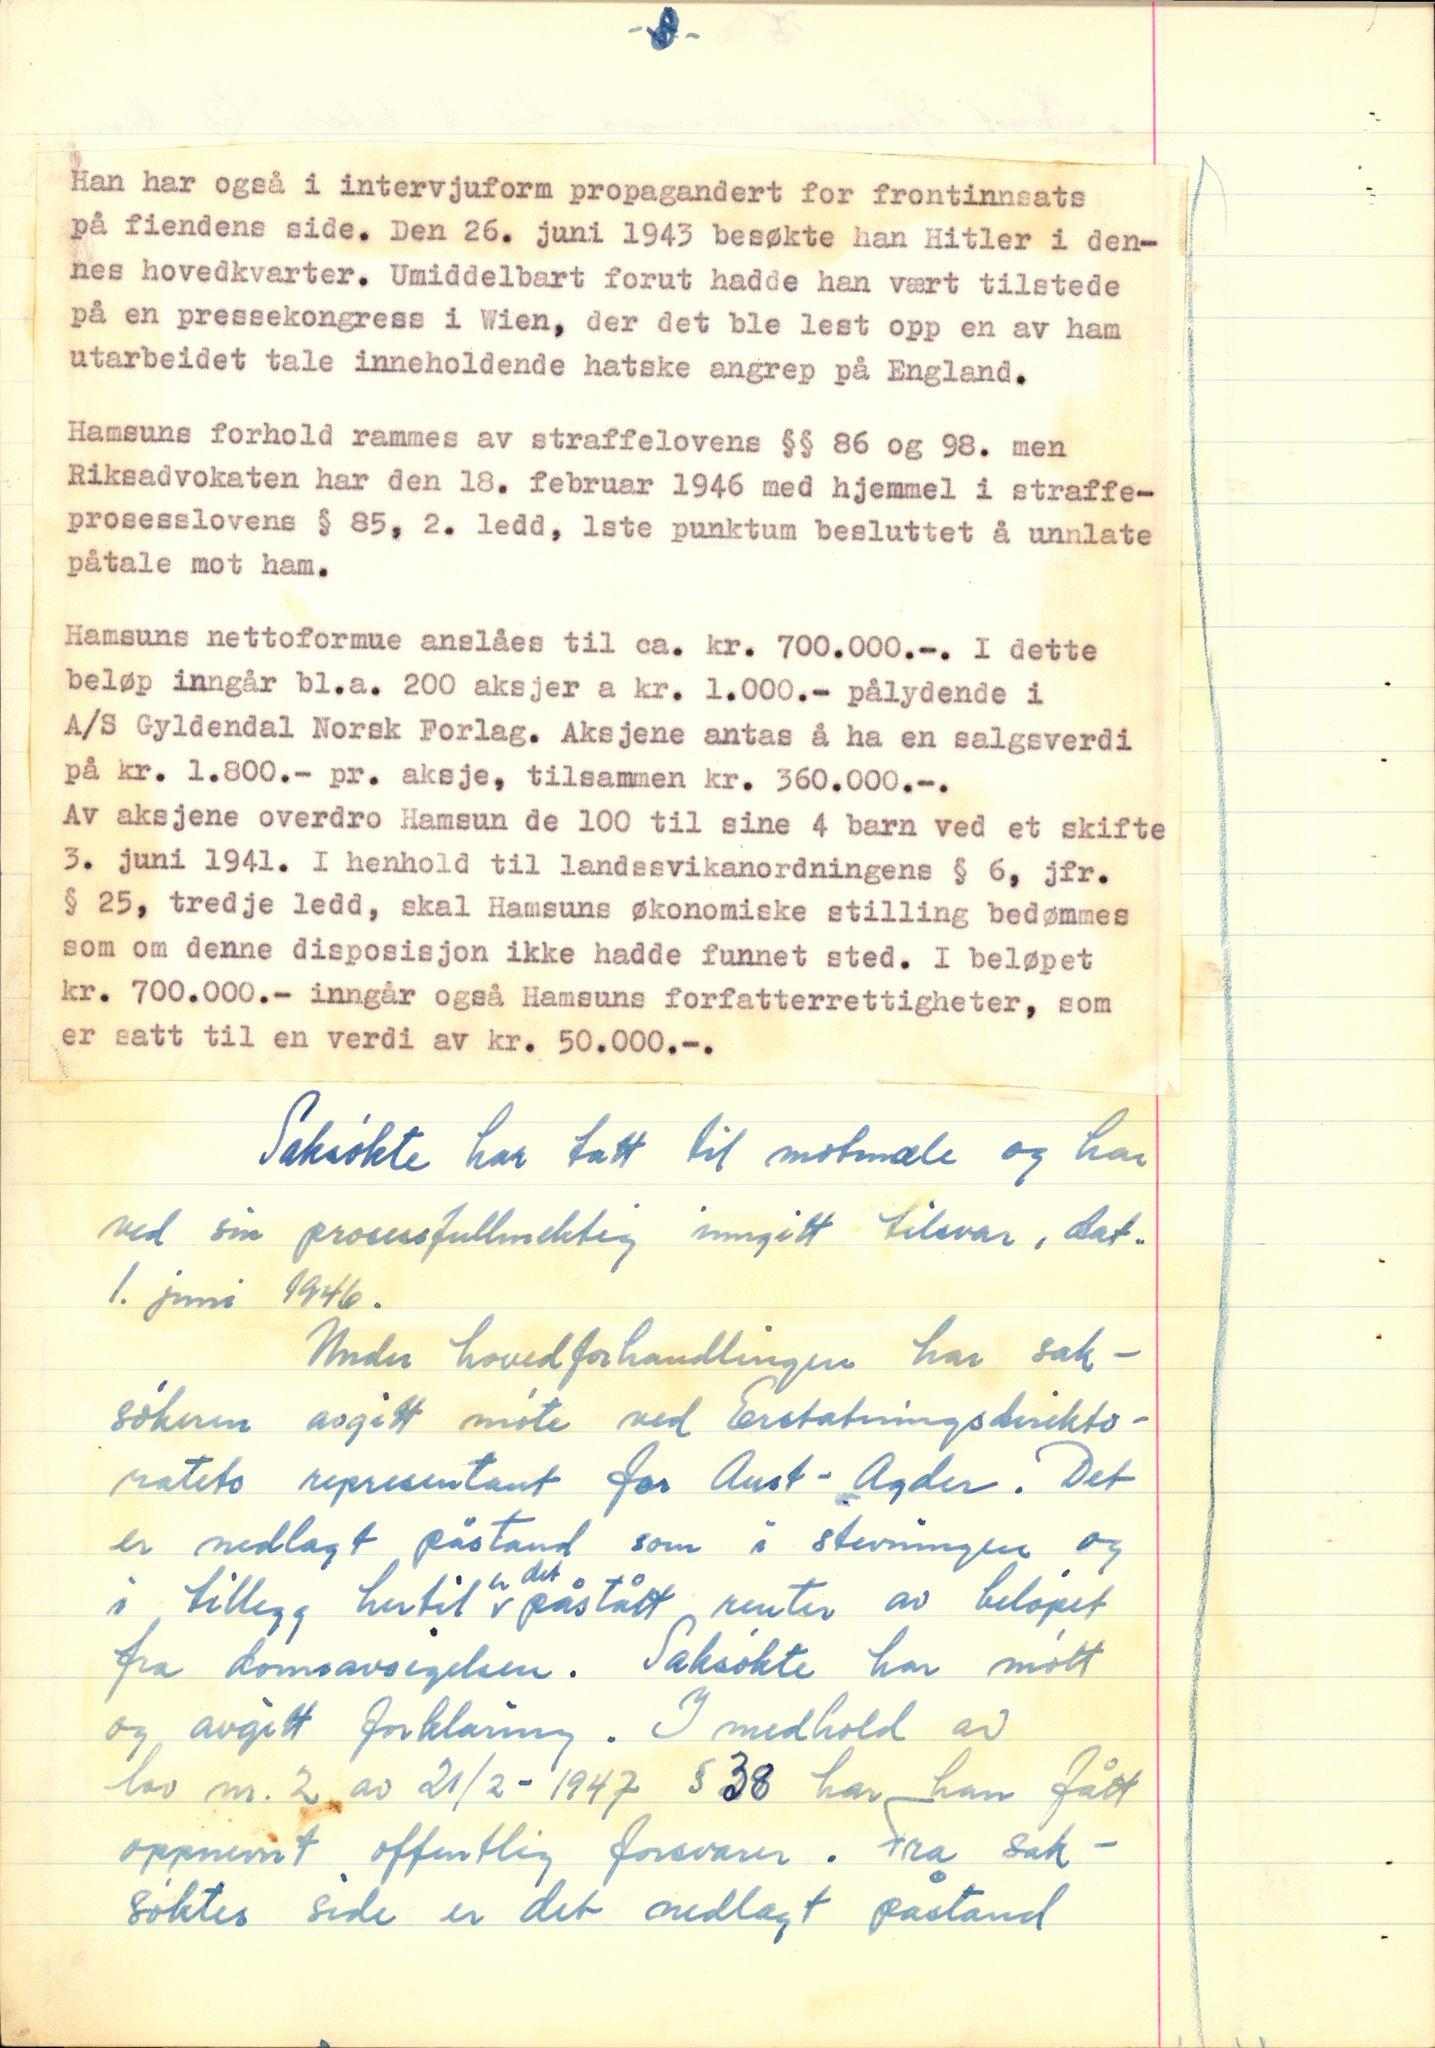 -8-
Han har også i intervjuform propagandert for frontinnsats
på fiendens side. Den 26. juni 1943 besøkte han Hitler i den-
nes hovedkvarter. Umiddelbart forut hadde han vært tilstede
på en pressekongress i Wien, der det ble lest opp en av ham
utarbeidet tale inneholdende hatske angrep på England.
Hamsuns forhold rammes av straffelovens §§ 86 og 98. men
Riksadvokaten har den 18. februar 1946 med hjemmel i straffe-
prosesslovens § 85, 2. ledd, 1ste punktum besluttet å unnlate
påtale mot ham.
Hamsuns nettoformue anslåes til ca. kr. 700.000.-. I dette
beløp inngår bl.a. 200 aksjer a kr. 1.000.- pålydende i
A/S Gyldendal Norsk Forlag. Aksjene antas å ha en salgsverdi
på kr. 1.800.- pr. aksje, tilsammen kr. 360.000.-.
Av aksjene overdro Hamsun de 100 til sine 4 barn ved et skifte
3. juni 1941. I henhold til landssvikanordningens § 6, jfr.
§ 25, tredje ledd, skal Hamsuns økonomiske stilling bedømmes
som om denne disposisjon ikke hadde funnet sted. I beløpet
kr. 700.000.- inngår også Hamsuns forfatterrettigheter, som
er satt til en verdi av kr. 50.000.-.
Saksökte har tatt til motmæle og har
ved sin prosessfullmektig inngitt tilsvar, dat.
1. juni 1946.
Under hovedforhandlingen har sak-
sökeren avgitt möte ved Erstatningsdirekto-
ratets representant for Aust-Agder. Det
er nedlagt påstand som i stevningen og
i tillegg hertil er det påstått renter av belöpet
fra domsavsigelsen. Saksökte har mött
og avgitt forklaring. I medhold av
lov nr. 2 av 21/2-1947 § 38 har han fått
oppnevnt offentlig forsvarer. Fra sak-
söktes side er det nedlagt påstand